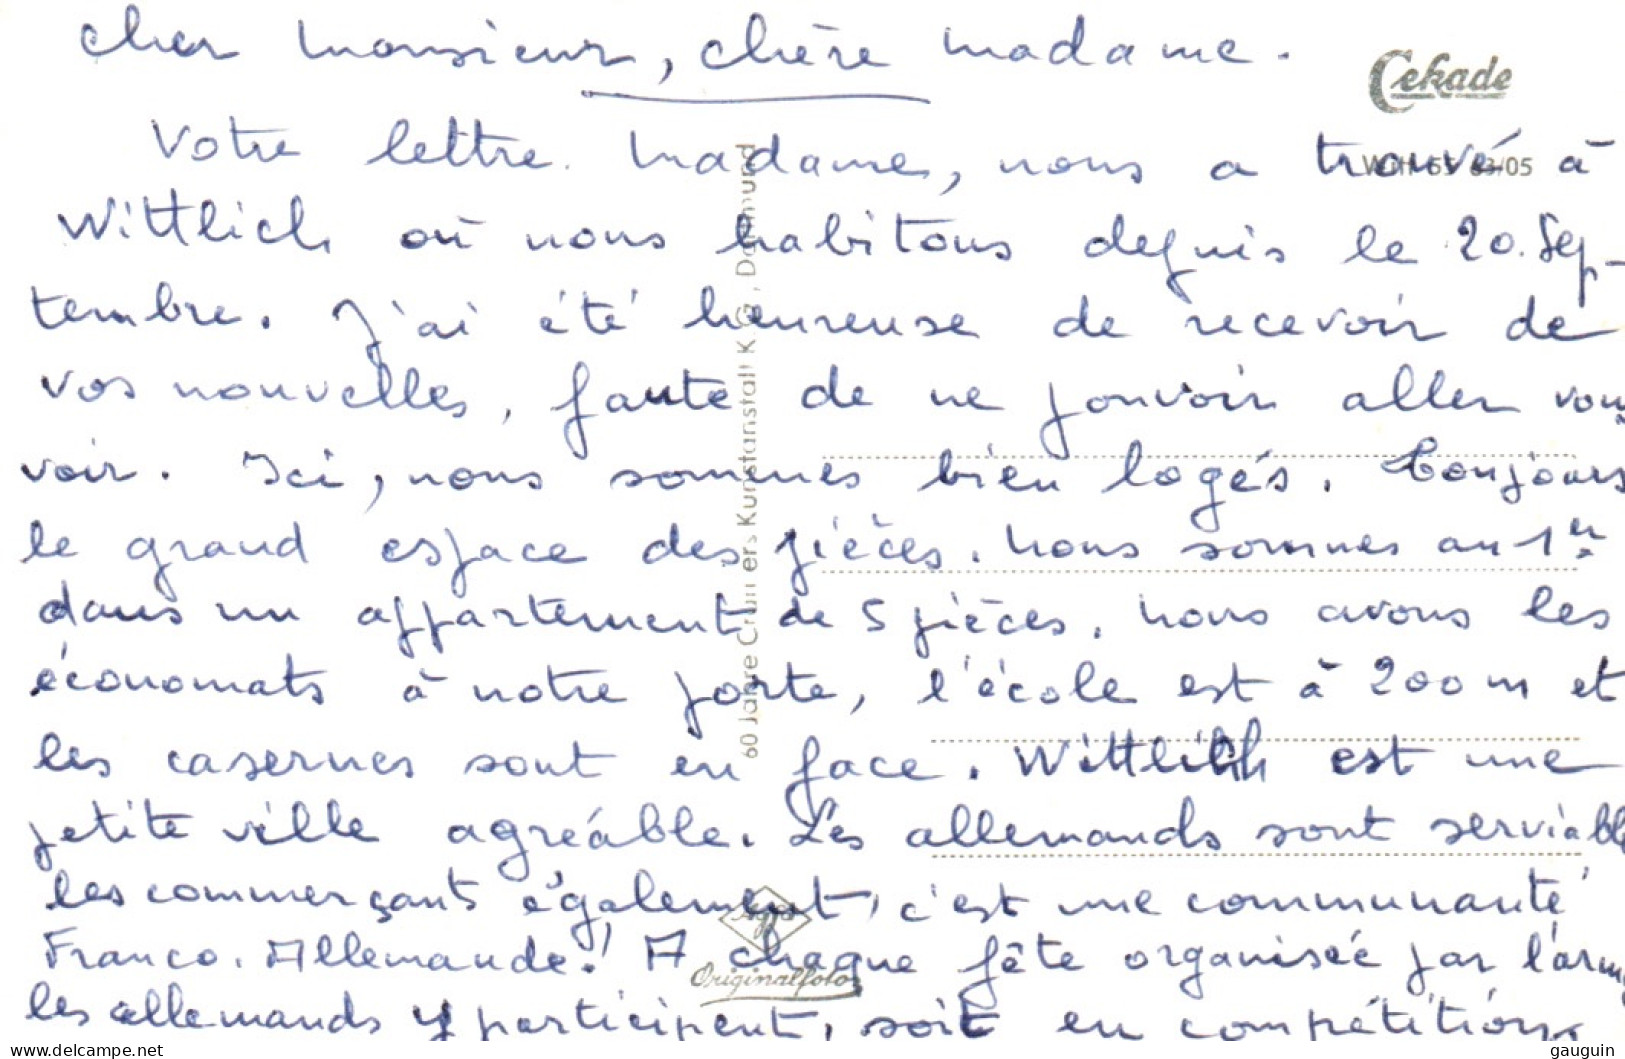 cher Monsieur, chère Madame.
Cekade
Votre lettre Madame, nous a trouvé à
Wittlich où nous habitons depuis le 20. Sep-
tembre. J'ai été heureuse de recevoir de
vos nouvelles, faute de ne pouvoir aller vous
voir. Ici, nous sommes bien logés. Toujours
le grand espace des pièces. Nous sommes au 1er
dans un appartement de 5 pièces, nous avons les
économats à notre porte, l'école est à 200 m et
les casernes sont en face. Wittlich est une
petite ville agréable. Les allemands sont serviable
les commerçants également, c'est une communauté
Franco-Allemande! A chaque fête organisée par l'armé
les allemands y participent, soit en compétitions
60 Jahre Cramers Kunstanstalt KG, Dortmund
Agfa
Originalfoto
delcampe.net
gauguin